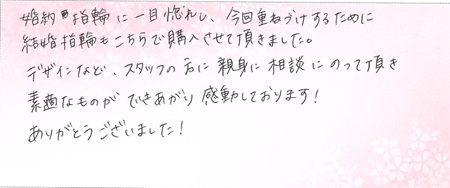 婚約指輪に一目惚れし、今回重ねづけするために
結婚指輪もこちらで購入させて頂きました。
デザインなど、スタッフの方に親身に相談にのって頂き
素適なものができあがり感動しております!
ありがとうございました!